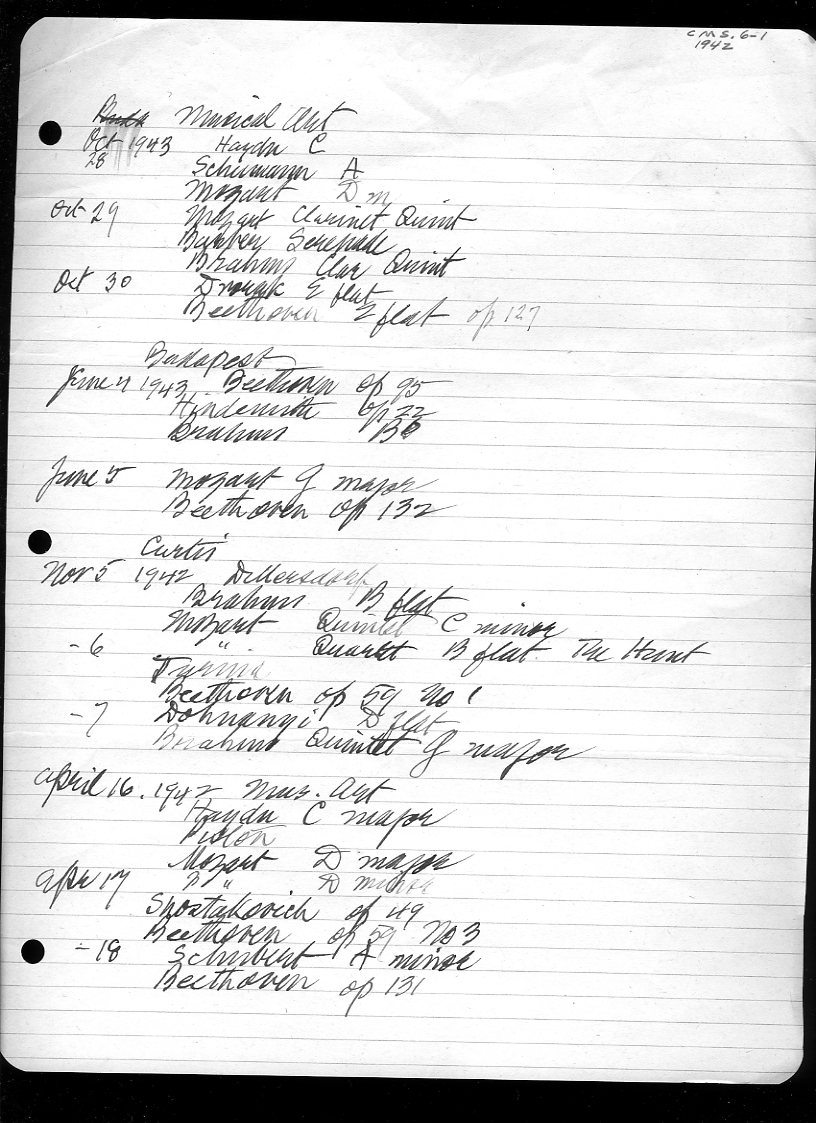 C.M.S. 6-1
1942
Musical Art
Oct 1943 Haydn C
28 Schumann A
Mozart D m
Oct 29 Mozart Clarinet Quint
Barber Serenade
Brahms Clar Quint
Oct 30 Dvorak E flat
Beethoven E flat op 127
Budapest
June 4 1943 Beethoven op 95
Hindemith op 22
Brahms Bb
June 5 Mozart G major
Beethoven op 132
Curtis
Nov 5 1942 Dittersdorf
Brahms B flat
Mozart Quintet C minor
- 6 " Quartet B flat. The Hunt
Turina
Beethoven op 59 No 1
- 7 Dohnanyi D flat
Brahms Quintet G major
April 16. 1942 Mus. Art
Haydn C major
Piston
Mozart D major
Apr 17 " " D minor
Shostakovich op 49
Beethoven op 59 No 3
- 18 Schubert A minor
Beethoven op 131